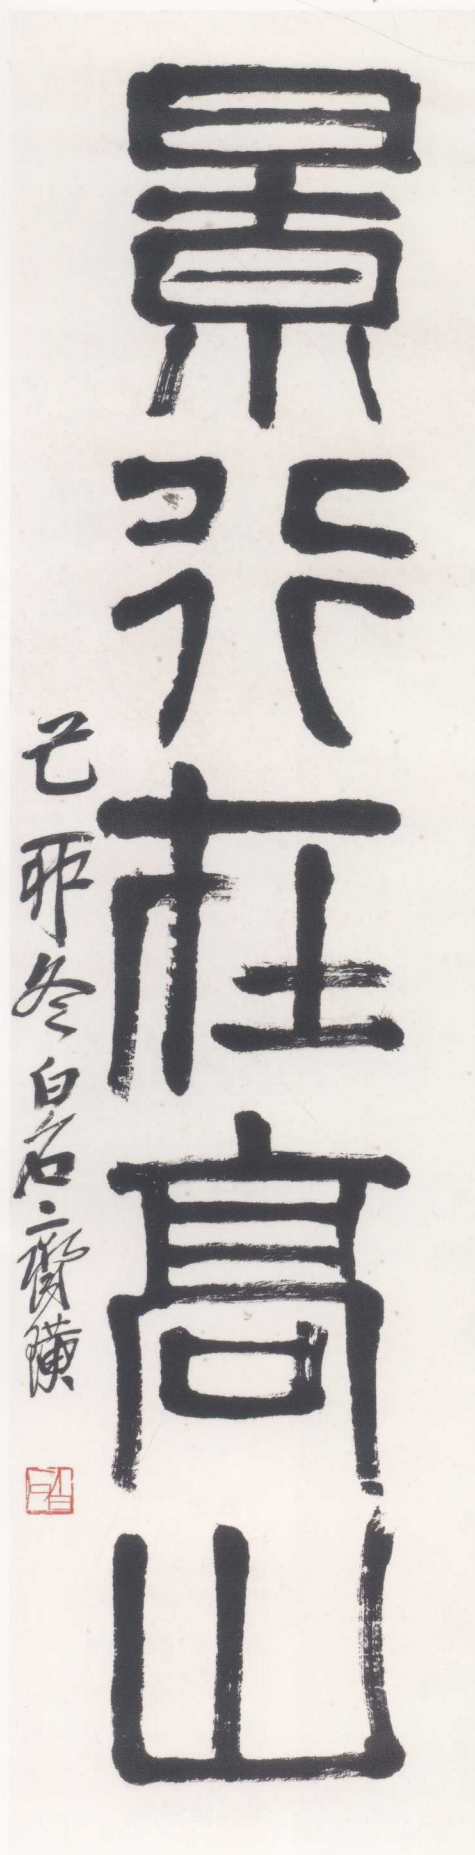 景行在高山
己卯冬白石齊璜
白石